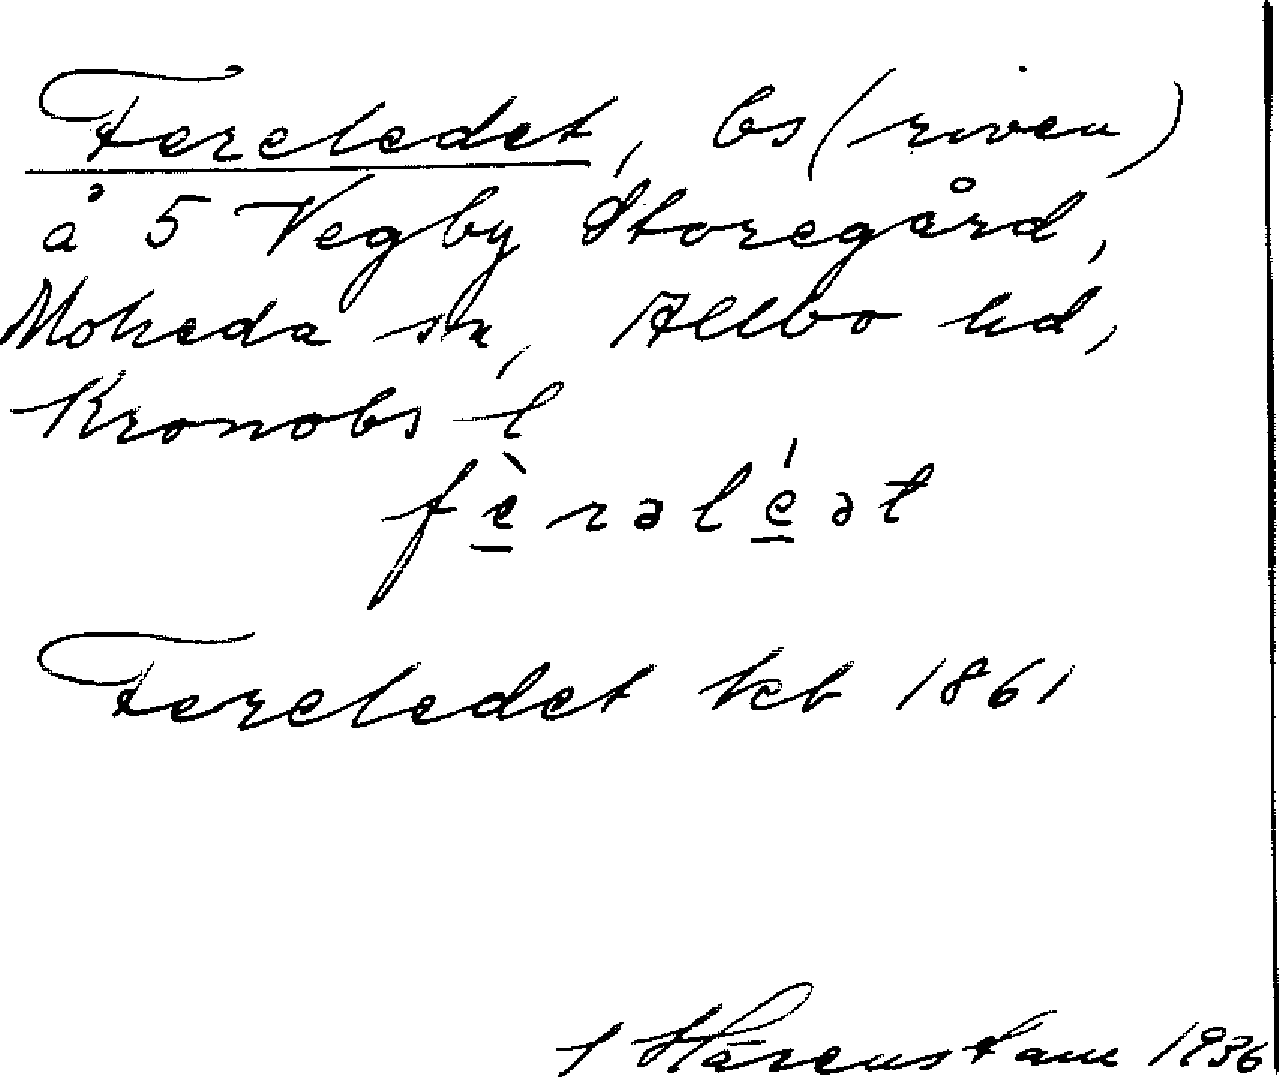 Fereledet, bs (riven)
å 5 Vegby Storegård,
Moheda sn, Allbo hd,
Kronobs l
fè̠rəlé̠ət
Fereledet kb 1861
Härenstam 1936